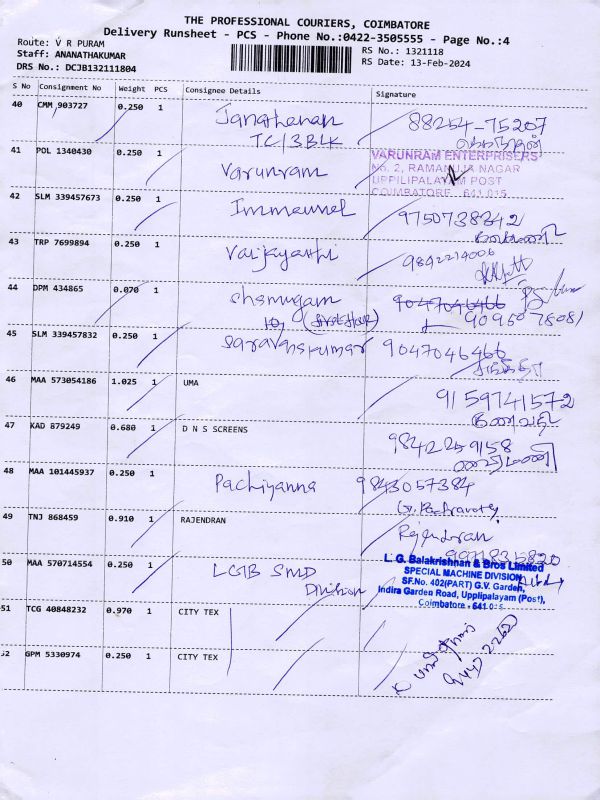 THE PROFESSIONAL COURIERS, COIMBATORE
Delivery Runsheet - PCS - Phone No.:0422-3505555 - Page No.:4
Route: V R PURAM
RS No.: 1321118
Staff: ANANATHAKUMAR
RS Date: 13-Feb-2024
DRS No.: DCJB132111804
S No Consignment No Weight PCS Consignee Details Signature
40 CMM 903727 0.250 1 Janathanan 88254-75207
TC/3BLK
41 POL 1340430 0.250 1 Varunram VARUNRAM ENTERPRISERS
No. 2, RAMANUJA NAGAR
UPPILIPALAYAM POST
COIMBATORE 641 015
42 SLM 339457673 0.250 1 Immanuel 9750738342
43 TRP 7699894 0.250 1 Vaijayanthi 9842214006
44 DPM 434865 0.070 1 Shsmugam 9047046466
9095078081
45 SLM 339457832 0.250 1 Saravanskumar 9047046466
46 MAA 573054186 1.025 1 UMA 9159741572
47 KAD 879249 0.680 1 D N S SCREENS 9842259158
48 MAA 101445937 0.250 1 Pachiyanna 9843057384
49 TNJ 868459 0.910 1 RAJENDRAN Rajendran
9971835820
50 MAA 570714554 0.250 1 LGB SMD
Division
L. G. Balakrishnan & Bros Limited
SPECIAL MACHINE DIVISION
SF.No. 402(PART) G.V. Garden,
Indira Garden Road, Upplipalayam (Post),
Coimbatore - 641 015
51 TCG 40848232 0.970 1 CITY TEX
52 GPM 5330974 0.250 1 CITY TEX